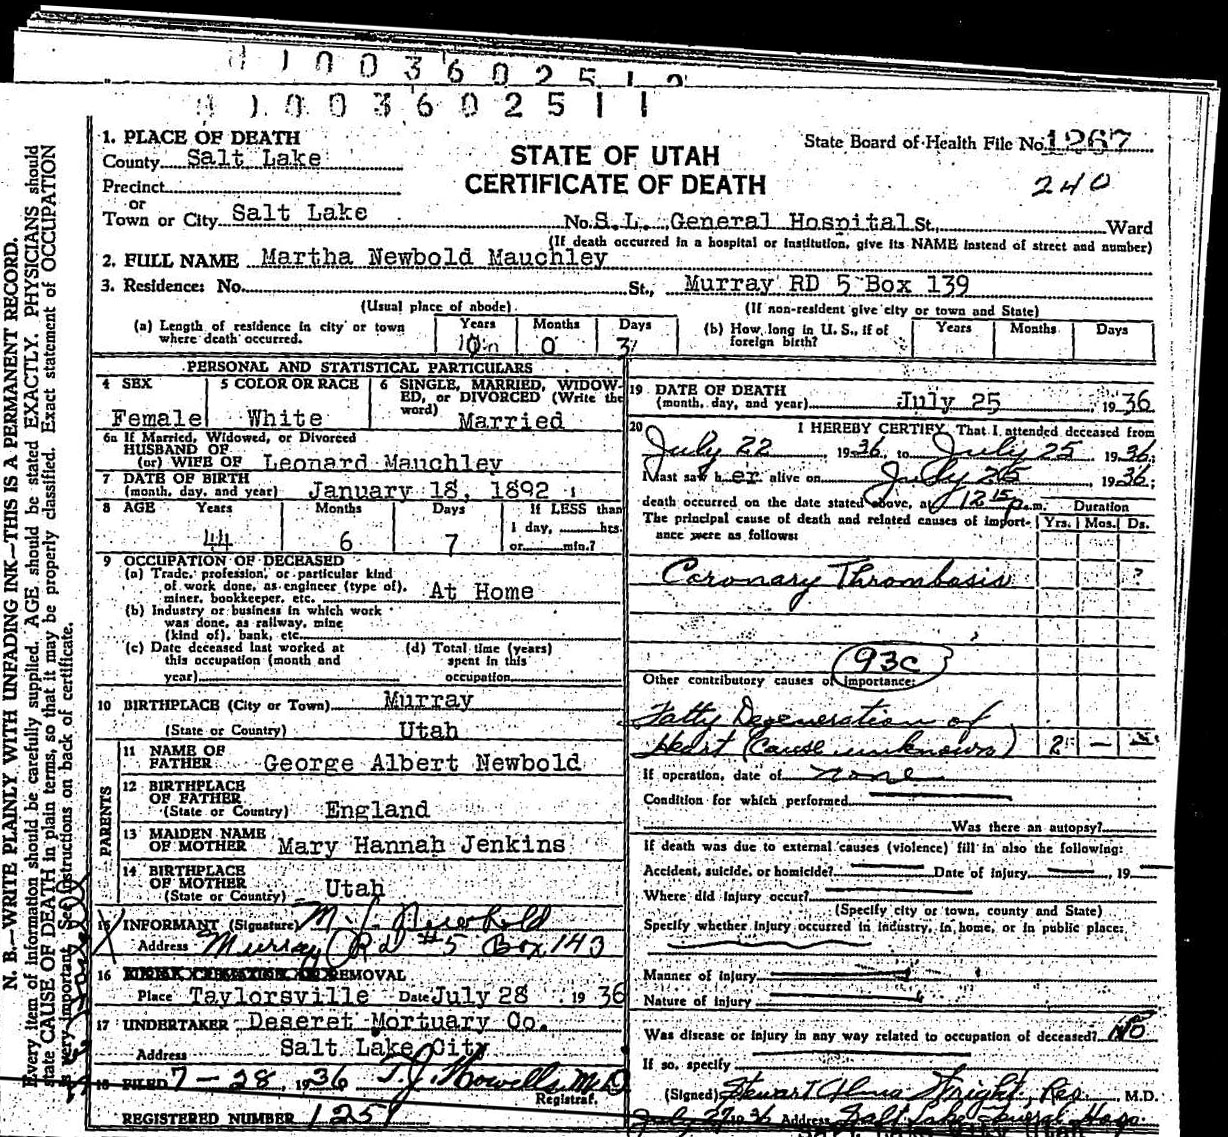 1 0 0 3 6 0 2 5 1
1 0 0 3 6 0 2 5 1 1
1. PLACE OF DEATH
County Salt Lake
Precinct
or
Town or City Salt Lake
STATE OF UTAH
CERTIFICATE OF DEATH
State Board of Health File No. 1267
240
No. S.L. General Hospital St., Ward
(If death occurred in a hospital or institution, give its NAME instead of street and number)
2. FULL NAME Martha Newbold Mauchley
3. Residence: No. St., Murray RD 5 Box 139
(Usual place of abode) (If non-resident give city or town and State)
(a) Length of residence in city or town where death occurred. Years Months 0 Days 3
(b) How long in U. S., if of foreign birth? Years Months Days
PERSONAL AND STATISTICAL PARTICULARS
4 SEX Female
5 COLOR OR RACE White
6 SINGLE, MARRIED, WIDOWED, OR DIVORCED (Write the word) Married
6a If Married, Widowed, or Divorced
HUSBAND OF
(or) WIFE OF Leonard Mauchley
7 DATE OF BIRTH
(month, day, and year) January 18, 1892
8 AGE Years 44 Months 6 Days 7 If LESS than 1 day, hrs. or min.?
9 OCCUPATION OF DECEASED
(a) Trade, profession, or particular kind
of work done, as engineer (type of),
miner, bookkeeper, etc. At Home
(b) Industry or business in which work
was done, as railway, mine
(kind of), bank, etc.
(c) Date deceased last worked at
this occupation (month and
year)
(d) Total time (years)
spent in this
occupation
10 BIRTHPLACE (City or Town) Murray
(State or Country) Utah
PARENTS
11 NAME OF
FATHER George Albert Newbold
12 BIRTHPLACE
OF FATHER
(State or Country) England
13 MAIDEN NAME
OF MOTHER Mary Hannah Jenkins
14 BIRTHPLACE
OF MOTHER
(State or Country) Utah
15 INFORMANT (Signature) M. J. Newbold
Address Murray Rd #5 Box 143
16 REMOVAL
Place Taylorsville Date July 28 1936
17 UNDERTAKER Deseret Mortuary Co.
Address Salt Lake City
18 FILED 7-28, 1936 T.J. Howells M.D.
Registrar.
REGISTERED NUMBER 1251
19 DATE OF DEATH
(month, day, and year) July 25, 1936
20 I HEREBY CERTIFY, That I attended deceased from
July 22, 1936, to July 25, 1936;
I last saw her alive on July 25, 1936;
death occurred on the date stated above, at 12 15 p.m. Duration
The principal cause of death and related causes of importance were as follows: Yrs. Mos. Ds.
Coronary Thrombosis ?
93c
Other contributory causes of importance:
Fatty Degeneration of
Heart (cause unknown) 2 —
If operation, date of none
Condition for which performed
Was there an autopsy?
If death was due to external causes (violence) fill in also the following:
Accident, suicide, or homicide? Date of injury, 19
Where did injury occur?
(Specify city or town, county and State)
Specify whether injury occurred in industry, in home, or in public place:
Manner of injury
Nature of injury
Was disease or injury in any way related to occupation of deceased? No
If so, specify
(Signed) Stewart Wright, Res. M.D.
July 27 1936 Address Salt Lake General Hosp.
N. B.—WRITE PLAINLY WITH UNFADING INK—THIS IS A PERMANENT RECORD.
Every item of information should be carefully supplied. AGE should be stated EXACTLY. PHYSICIANS should
state CAUSE OF DEATH in plain terms, so that it may be properly classified. Exact statement of OCCUPATION
is very important. See instructions on back of certificate.